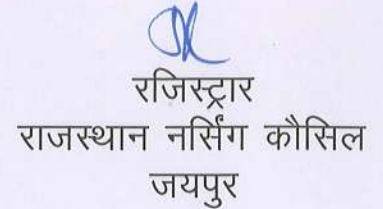 रजिस्ट्रार
राजस्थान नर्सिंग कौसिल
जयपुर